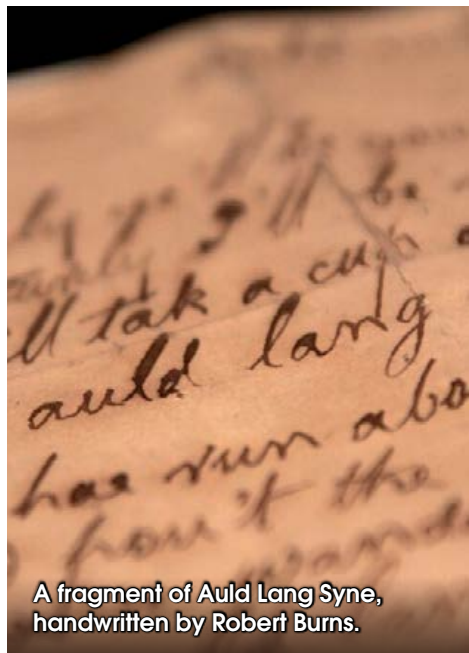 I'll be
ll tak a cup o
auld lang
hae run abo
pou't the
wand
A fragment of Auld Lang Syne,
handwritten by Robert Burns.